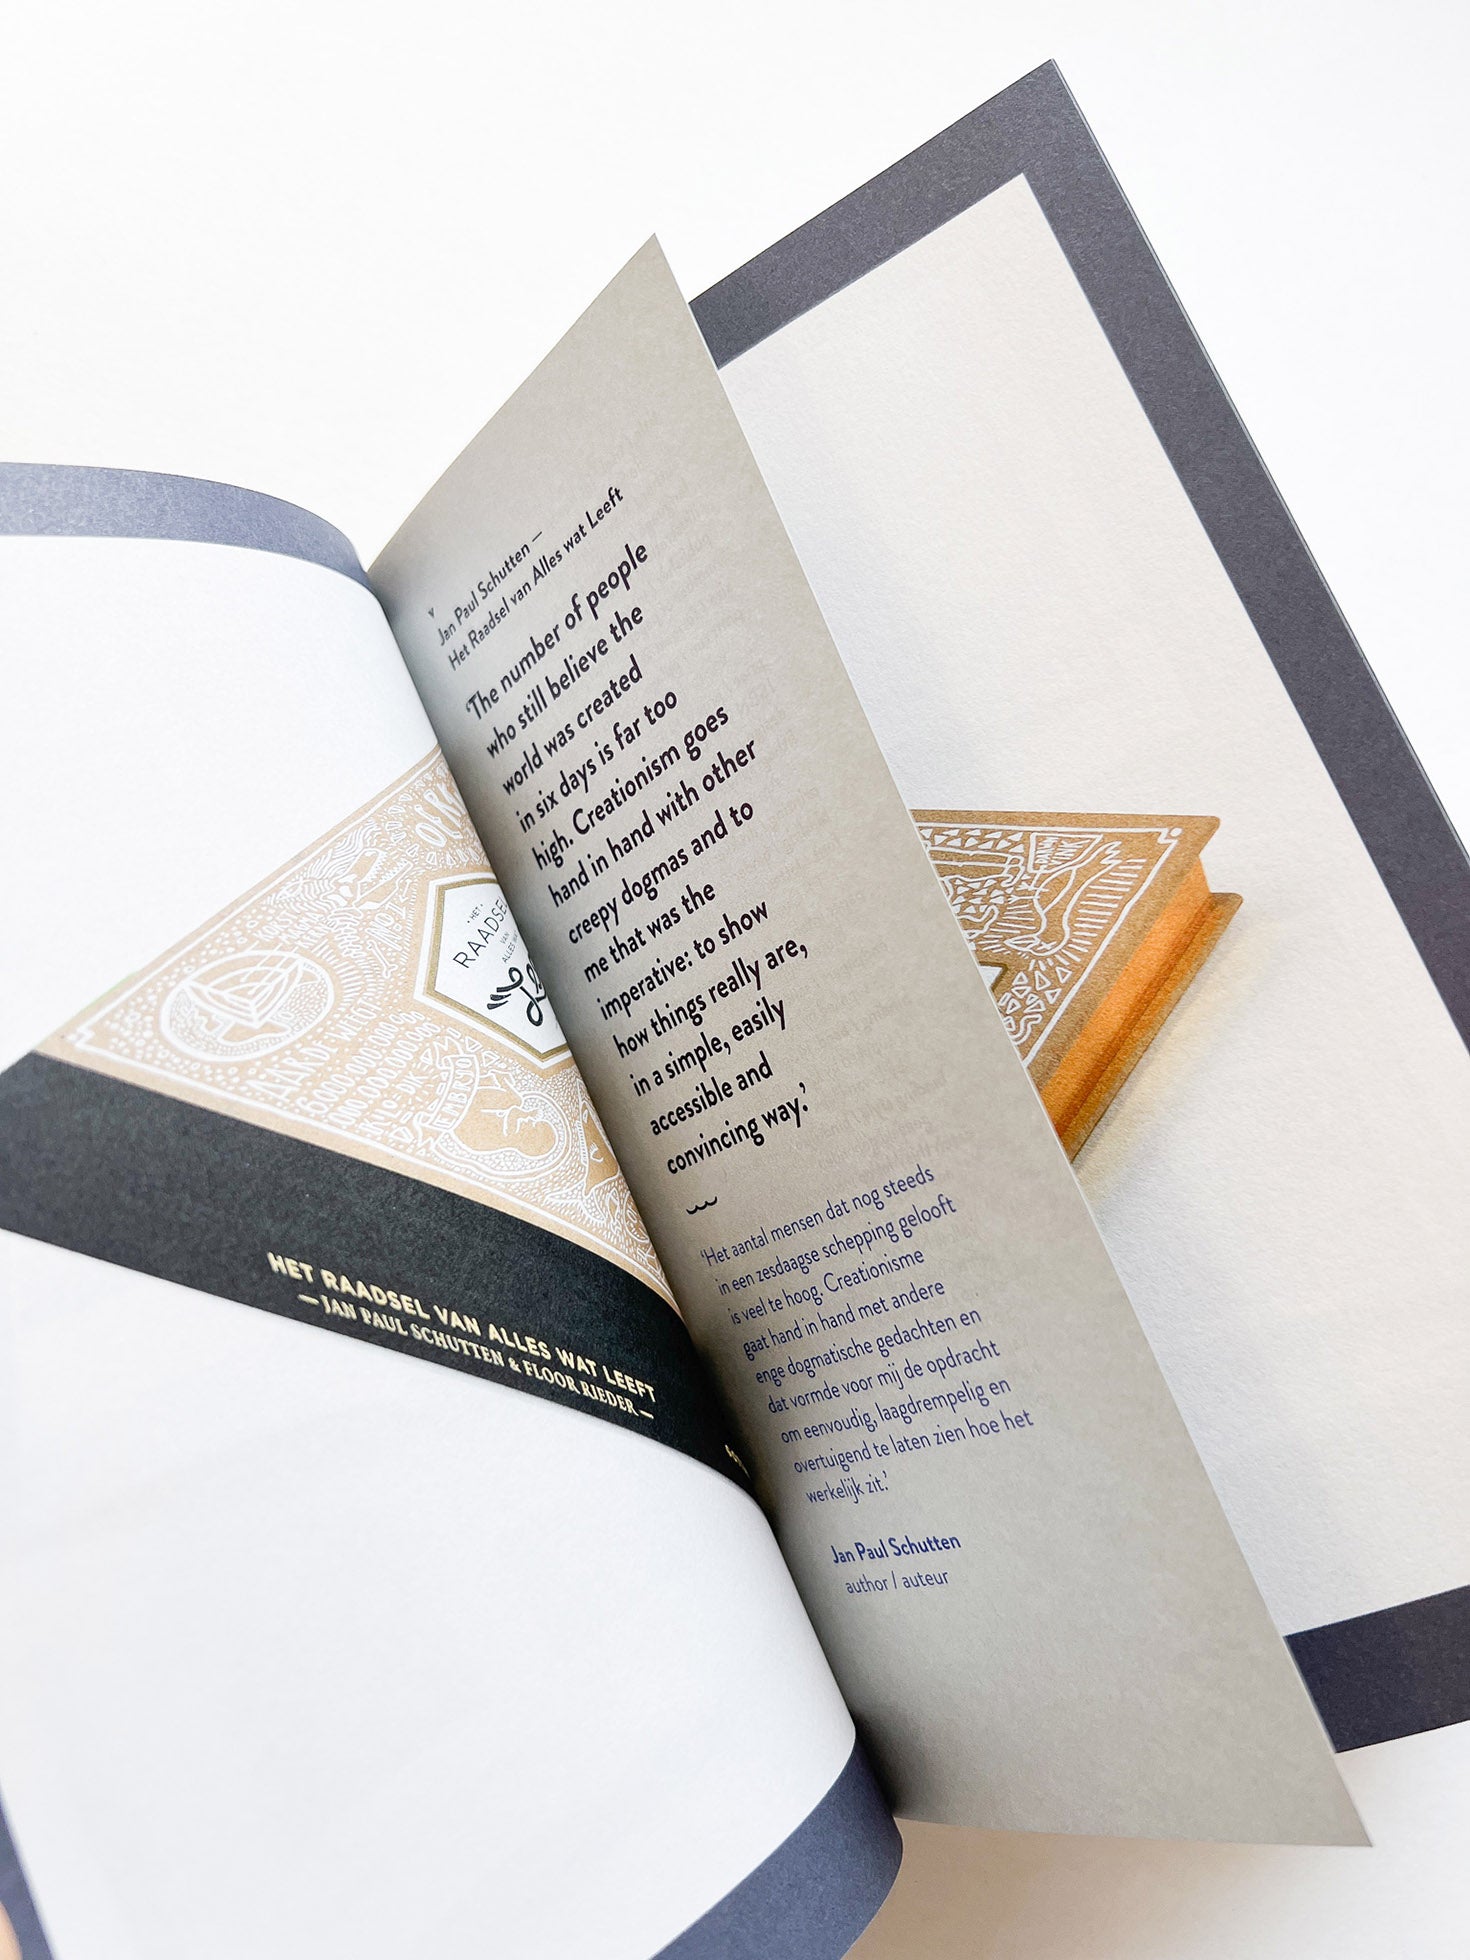 HET
RAADSEL
VAN
ALLES WA
EMBRYO
HET RAADSEL VAN ALLES WAT LEEFT
— JAN PAUL SCHUTTEN & FLOOR RIEDER —
Jan Paul Schutten —
Het Raadsel van Alles wat Leeft
‘The number of people
who still believe the
world was created
in six days is far too
high. Creationism goes
hand in hand with other
creepy dogmas and to
me that was the
imperative: to show
how things really are,
in a simple, easily
accessible and
convincing way.’
‘Het aantal mensen dat nog steeds
in een zesdaagse schepping gelooft
is veel te hoog. Creationisme
gaat hand in hand met andere
enge dogmatische gedachten en
dat vormde voor mij de opdracht
om eenvoudig, laagdrempelig en
overtuigend te laten zien hoe het
werkelijk zit.’
Jan Paul Schutten
author / auteur